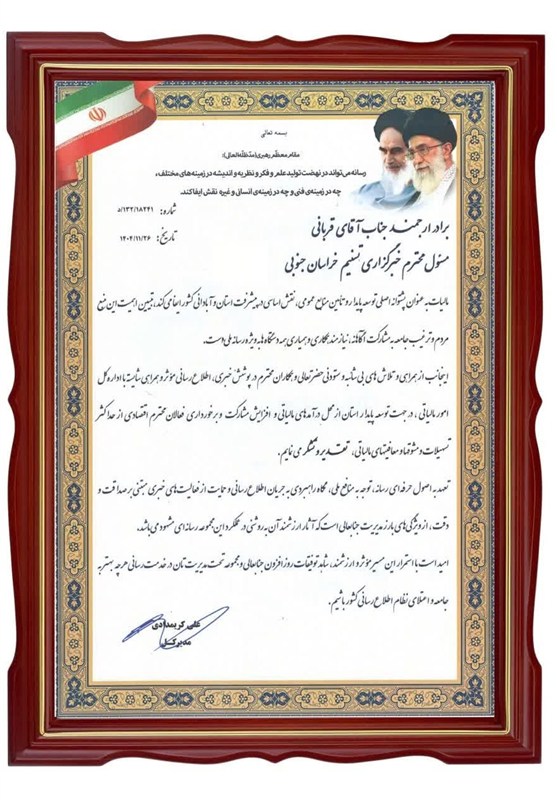 بسمه تعالی
مقام معظّم رهبری(مدّظلّه‌العالی):
رسانه می‌تواند در نهضت تولید علم و فکر و نظریه و اندیشه در زمینه‌های مختلف،
چه در زمینه‌ی فنی و چه در زمینه‌ی انسانی و غیره نقش ایفا کند.
شماره: ۵/۱۳۲/۱۸۲۴۱
تاریخ: ۱۴۰۴/۱۱/۲۶
برادر ارجمند جناب آقای قربانی
مسئول محترم خبرگزاری تسنیم خراسان جنوبی
مالیات به عنوان پشتوانه اصلی توسعه پایدار و تأمین منابع عمومی، نقش اساسی در پیشرفت استان و آبادانی کشور ایفا می‌کند، تبیین اهمیت این منبع
مردم و ترغیب جامعه به مشارکت آگاهانه، نیازمند همکاری و همیاری همه دستگاه‌ها به ویژه رسانه ملی دست.
اینجانب از همراهی و تلاش های بی شائبه و ستودنی حضرتعالی و همکاران محترم در پوشش خبری، اطلاع رسانی مؤثر و همراهی شایسته با اداره کل
امور مالیاتی، در جهت توسعه پایدار استان از محل درآمدهای مالیاتی و افزایش مشارکت و برخورداری فعالان محترم اقتصادی از حداکثر
تسهیلات و مشوقها و معافیتهای مالیاتی، تقدیر و تشکر می نمایم.
تعهد به اصول حرفه ای رسانه، توجه به منافع ملی، نگاه راهبردی به جریان اطلاع رسانی و حمایت از فعالیت های خبری مبتنی بر صداقت و
دقت، از ویژگی های بارز مدیریت جنابعالی است که آثار ارزشمند آن به روشنی در عملکرد این مجموعه رسانه ای مشهود می باشد.
امید است با استمرار این مسیر مؤثر و ارزشمند، شاهد توفیقات روزافزون جنابعالی و مجموعه تحت مدیریت تان در خدمت رسانی هرچه بهتر به
جامعه و اعتلای نظام اطلاع رسانی کشور باشیم.
علی کریمدادی
مدیرکل